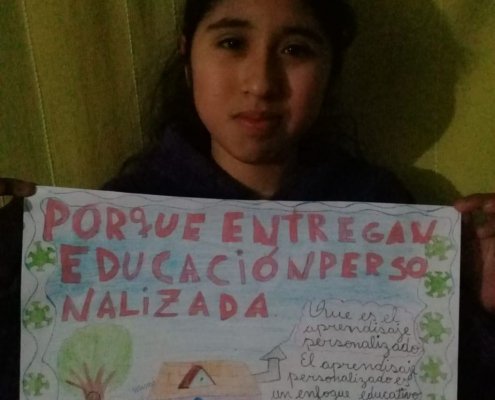 PORqUE ENTREGAN
EDUCACIÓN PERSO
NALIZADA.
Que es el
aprendisaje
personalizado
El aprendisaje
personalizado es
un enfoque educativo